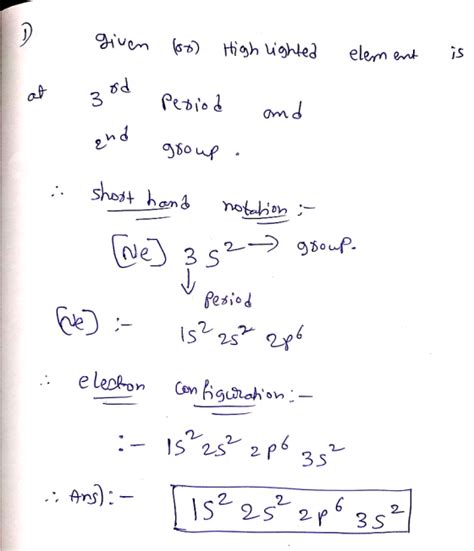 1) Given (or) Highlighted element is
at 3rd Period and
2nd group.
∴ short hand notation :-
[Ne] 3s² → group.
↓ Period
[Ne] :- 1s² 2s² 2p⁶
∴ electron configuration :-
:- 1s² 2s² 2p⁶ 3s²
∴ Ans) :- 1s² 2s² 2p⁶ 3s²